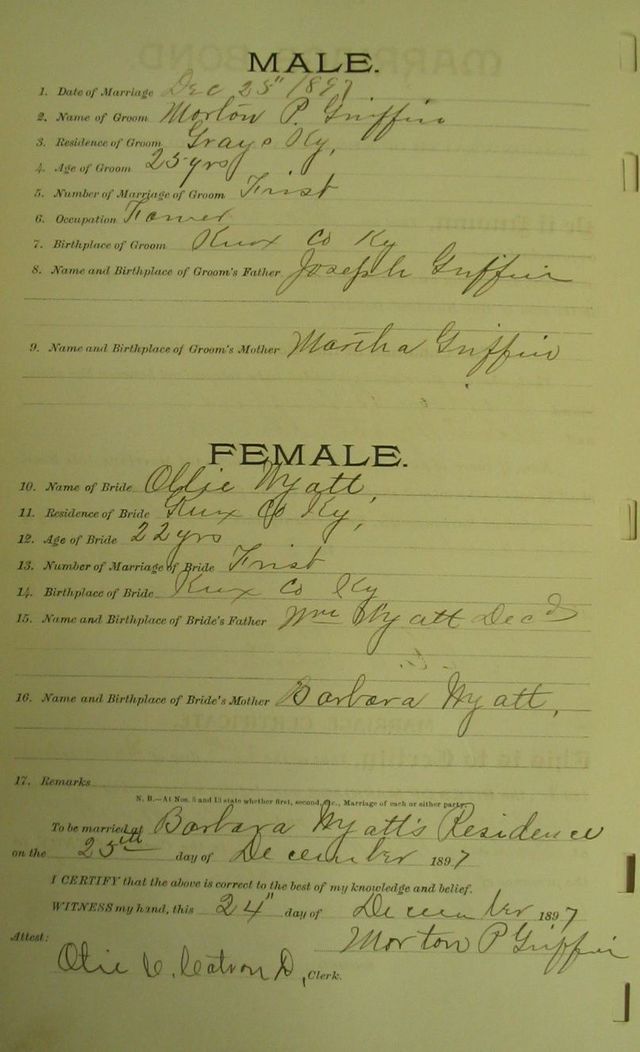 MALE.
1. Date of Marriage Dec 25" 1897
2. Name of Groom Morton P. Griffin
3. Residence of Groom Grays Ky,
4. Age of Groom 25 yrs
5. Number of Marriage of Groom Frist
6. Occupation Farmer
7. Birthplace of Groom Knox Co Ky
8. Name and Birthplace of Groom's Father Joseph Griffin
9. Name and Birthplace of Groom's Mother Martha Griffin
FEMALE.
10. Name of Bride Ollie Wyatt,
11. Residence of Bride Knox Co Ky,
12. Age of Bride 22 yrs
13. Number of Marriage of Bride Frist
14. Birthplace of Bride Knox Co Ky
15. Name and Birthplace of Bride's Father Wm Wyatt Decd
16. Name and Birthplace of Bride's Mother Barbara Wyatt,
17. Remarks
N. B.—At Nos. 5 and 13 state whether first, second, etc., Marriage of each or either party.
To be married at Barbara Wyatt's Residence
on the 25th day of December 1897
I CERTIFY that the above is correct to the best of my knowledge and belief.
WITNESS my hand, this 24" day of December 1897
Morton P Griffin
Attest:
Clerk.